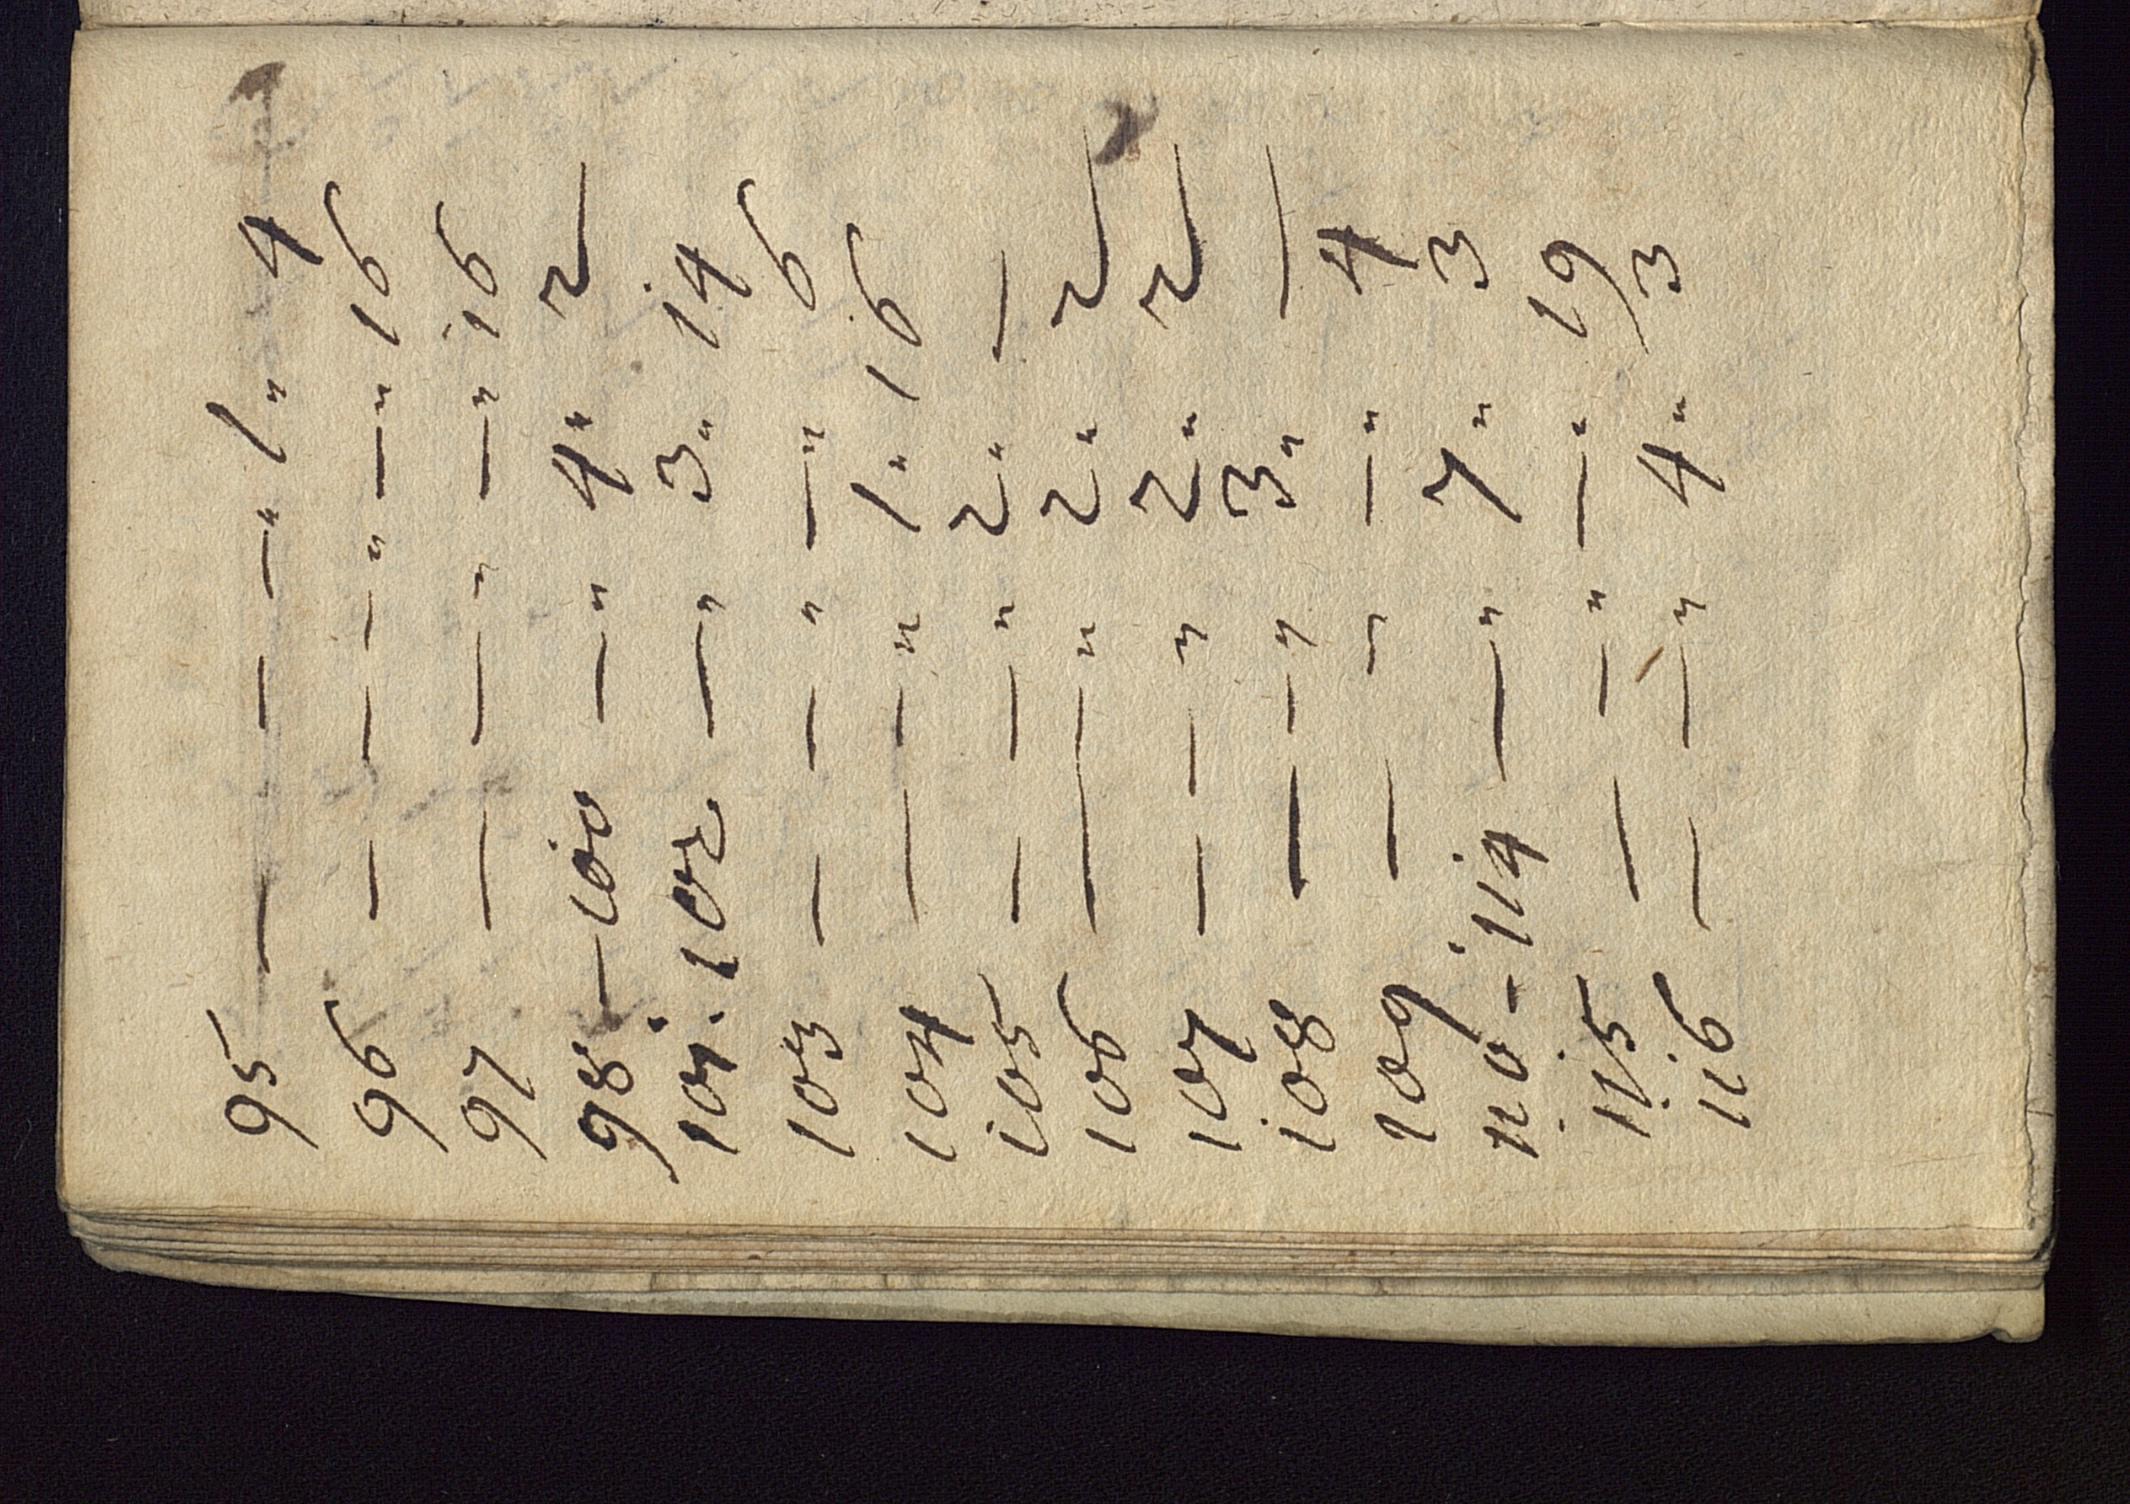 95 — — — " 1 " 4
96 — — — " — " 16
97 — — " — " 16
98 — 100 — " 4 " 2
101. 102 — " 3 " 14
103 — — " — " 6
104 — — " 1 " 16
105 — — " 2 " —
106 — — " 2 " 2
107 — — " 2 " 2
108 — — " 3 " —
109 — — " — " 4
110 - 114 — " 7 " 3
115 — — " — " 19
116 — — " 4 " 3